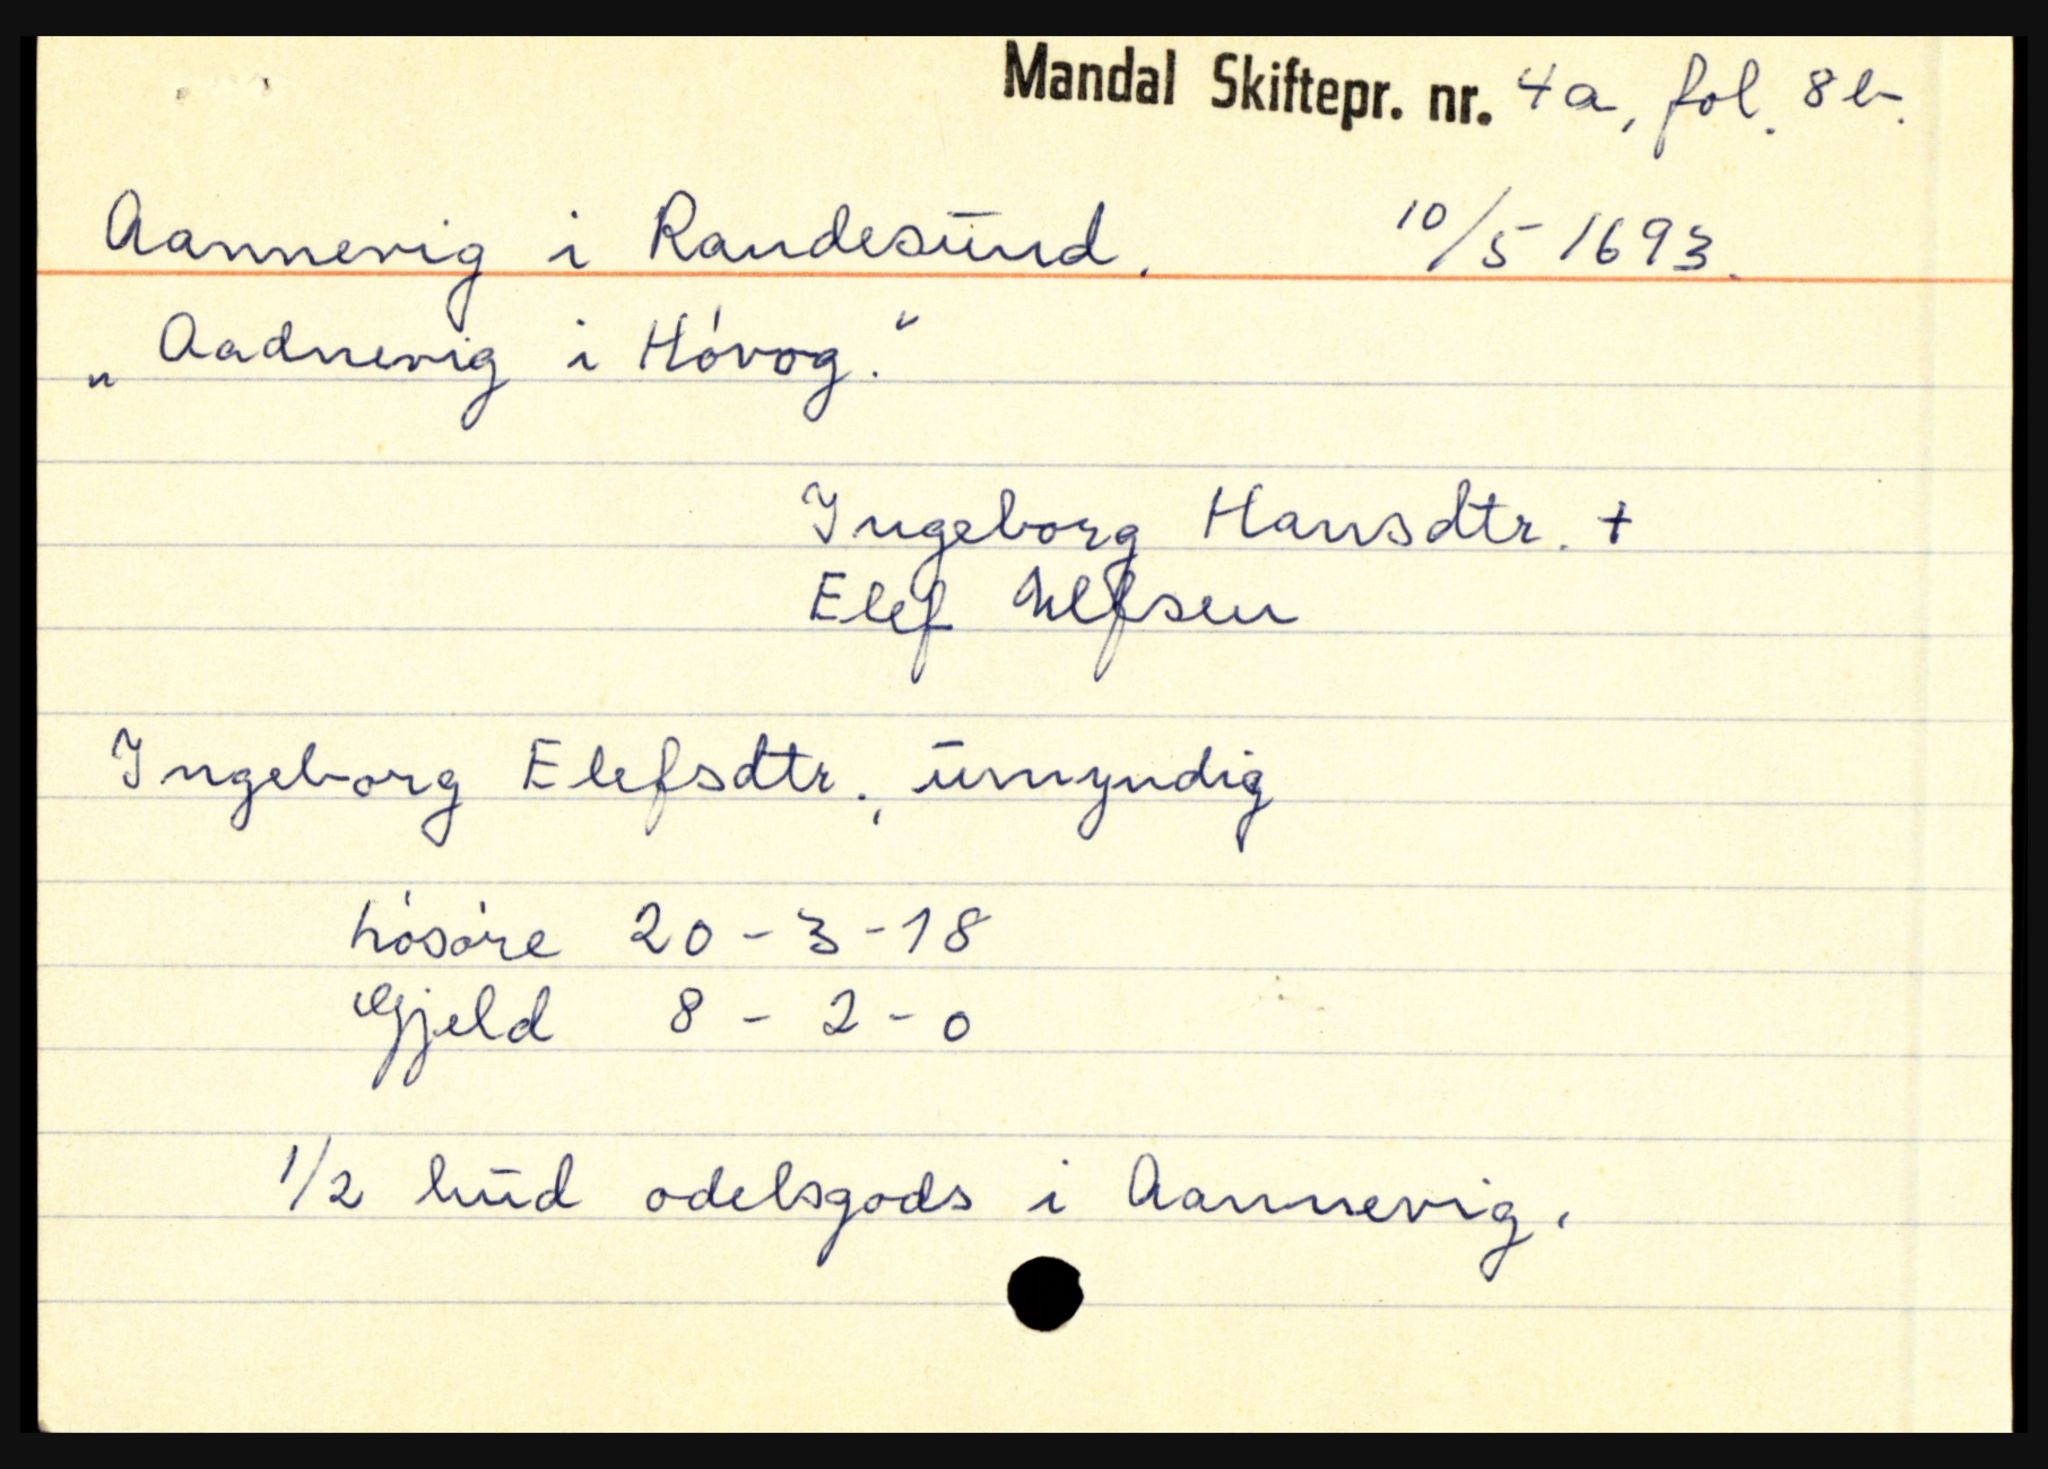 Mandal Skiftepr. nr. 4a, fol. 8b.
Aannevig i Randesund. 10/5 1693.
„Aadnevig i Hóvog.“
Ingeborg Hansdtr. +
Elef Ulfsen
Ingeborg Elefsdtr., umyndig
Lósóre 20-3-18
Gjeld 8-2-0
1/2 hud odelsgods i Aannevig.